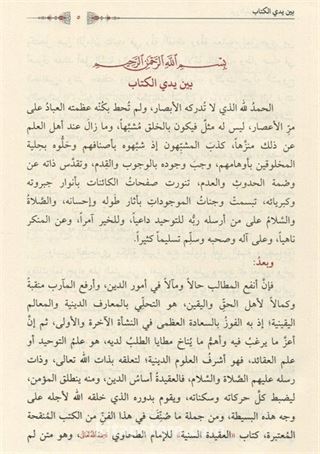 بين يدي الكتاب
٥
بِسْمِ اللَّهِ الرَّحْمَٰنِ الرَّحِيمِ
بين يدي الكتاب
الحمدُ لله الذي لا تُدركه الأبصار، ولم تُحط بكُنْه عظمته العبادُ على
مرِّ الأعصار، ليس له مثلٌ فيكون بالخلق مُشبَّهاً، وما زال عند أهل العلم
عن ذلك منزَّهاً، كذبَ المشبِّهون إذ شبَّهوه بأصنافهم وحلَّوه بحلية
المخلوقين بأوهامهم، وجبَ وجوده بالوجوب والقِدم، وتقدَّس ذاته عن
وصْمة الحدوث والعدم، تنورت صفحاتُ الكائنات بأنوار جبروته
وكبريائه، تبسمتْ وجناتُ الموجوداتِ بآثار طَوله وإحسانه، والصَّلاةُ
والسَّلامُ على من أرسله ربُّه للتوحيد داعياً، وللخير آمراً، وعن المنكر
ناهياً، وعلى آله وصحبه وسلَّم تسليماً كثيراً.
وبعدُ:
فإنَّ أنفع المطالب حالاً ومآلاً في أمور الدين، وأرفع المآرب منقبةً
وكمالاً لأهل الحقِّ واليقين، هو التحلِّي بالمعارف الدينية والمعالم
اليقينية؛ إذ به الفوزُ بالسعادة العظمى في النشأة الآخرة والأولى، ثم إنَّ
أعزَّ ما يرغبُ فيه وأهمَّ ما يُناخ مطايا الطلبُ لديه، هو علمُ التوحيد أو
علم العقائد، فهو أشرفُ العلوم الدينية؛ لتعلقه بذات الله تعالى، وذات
رسله عليهم الصَّلاة والسَّلام، فالعقيدةُ أساسُ الدين، ومنه ينطلق المؤمن،
ليضبط كلَّ حركاته وسكناته، ويقوم بدوره الذي خلقه الله لأجله على
وجه هذه البسيطة، ومن جملة ما صُنِّف في هذا الفنِّ من الكتب المُنقحة
المُعتبرة، كتاب «العقيدة السنية» للإمام الطحاوي رحمه الله تعالى، وهو متن لم